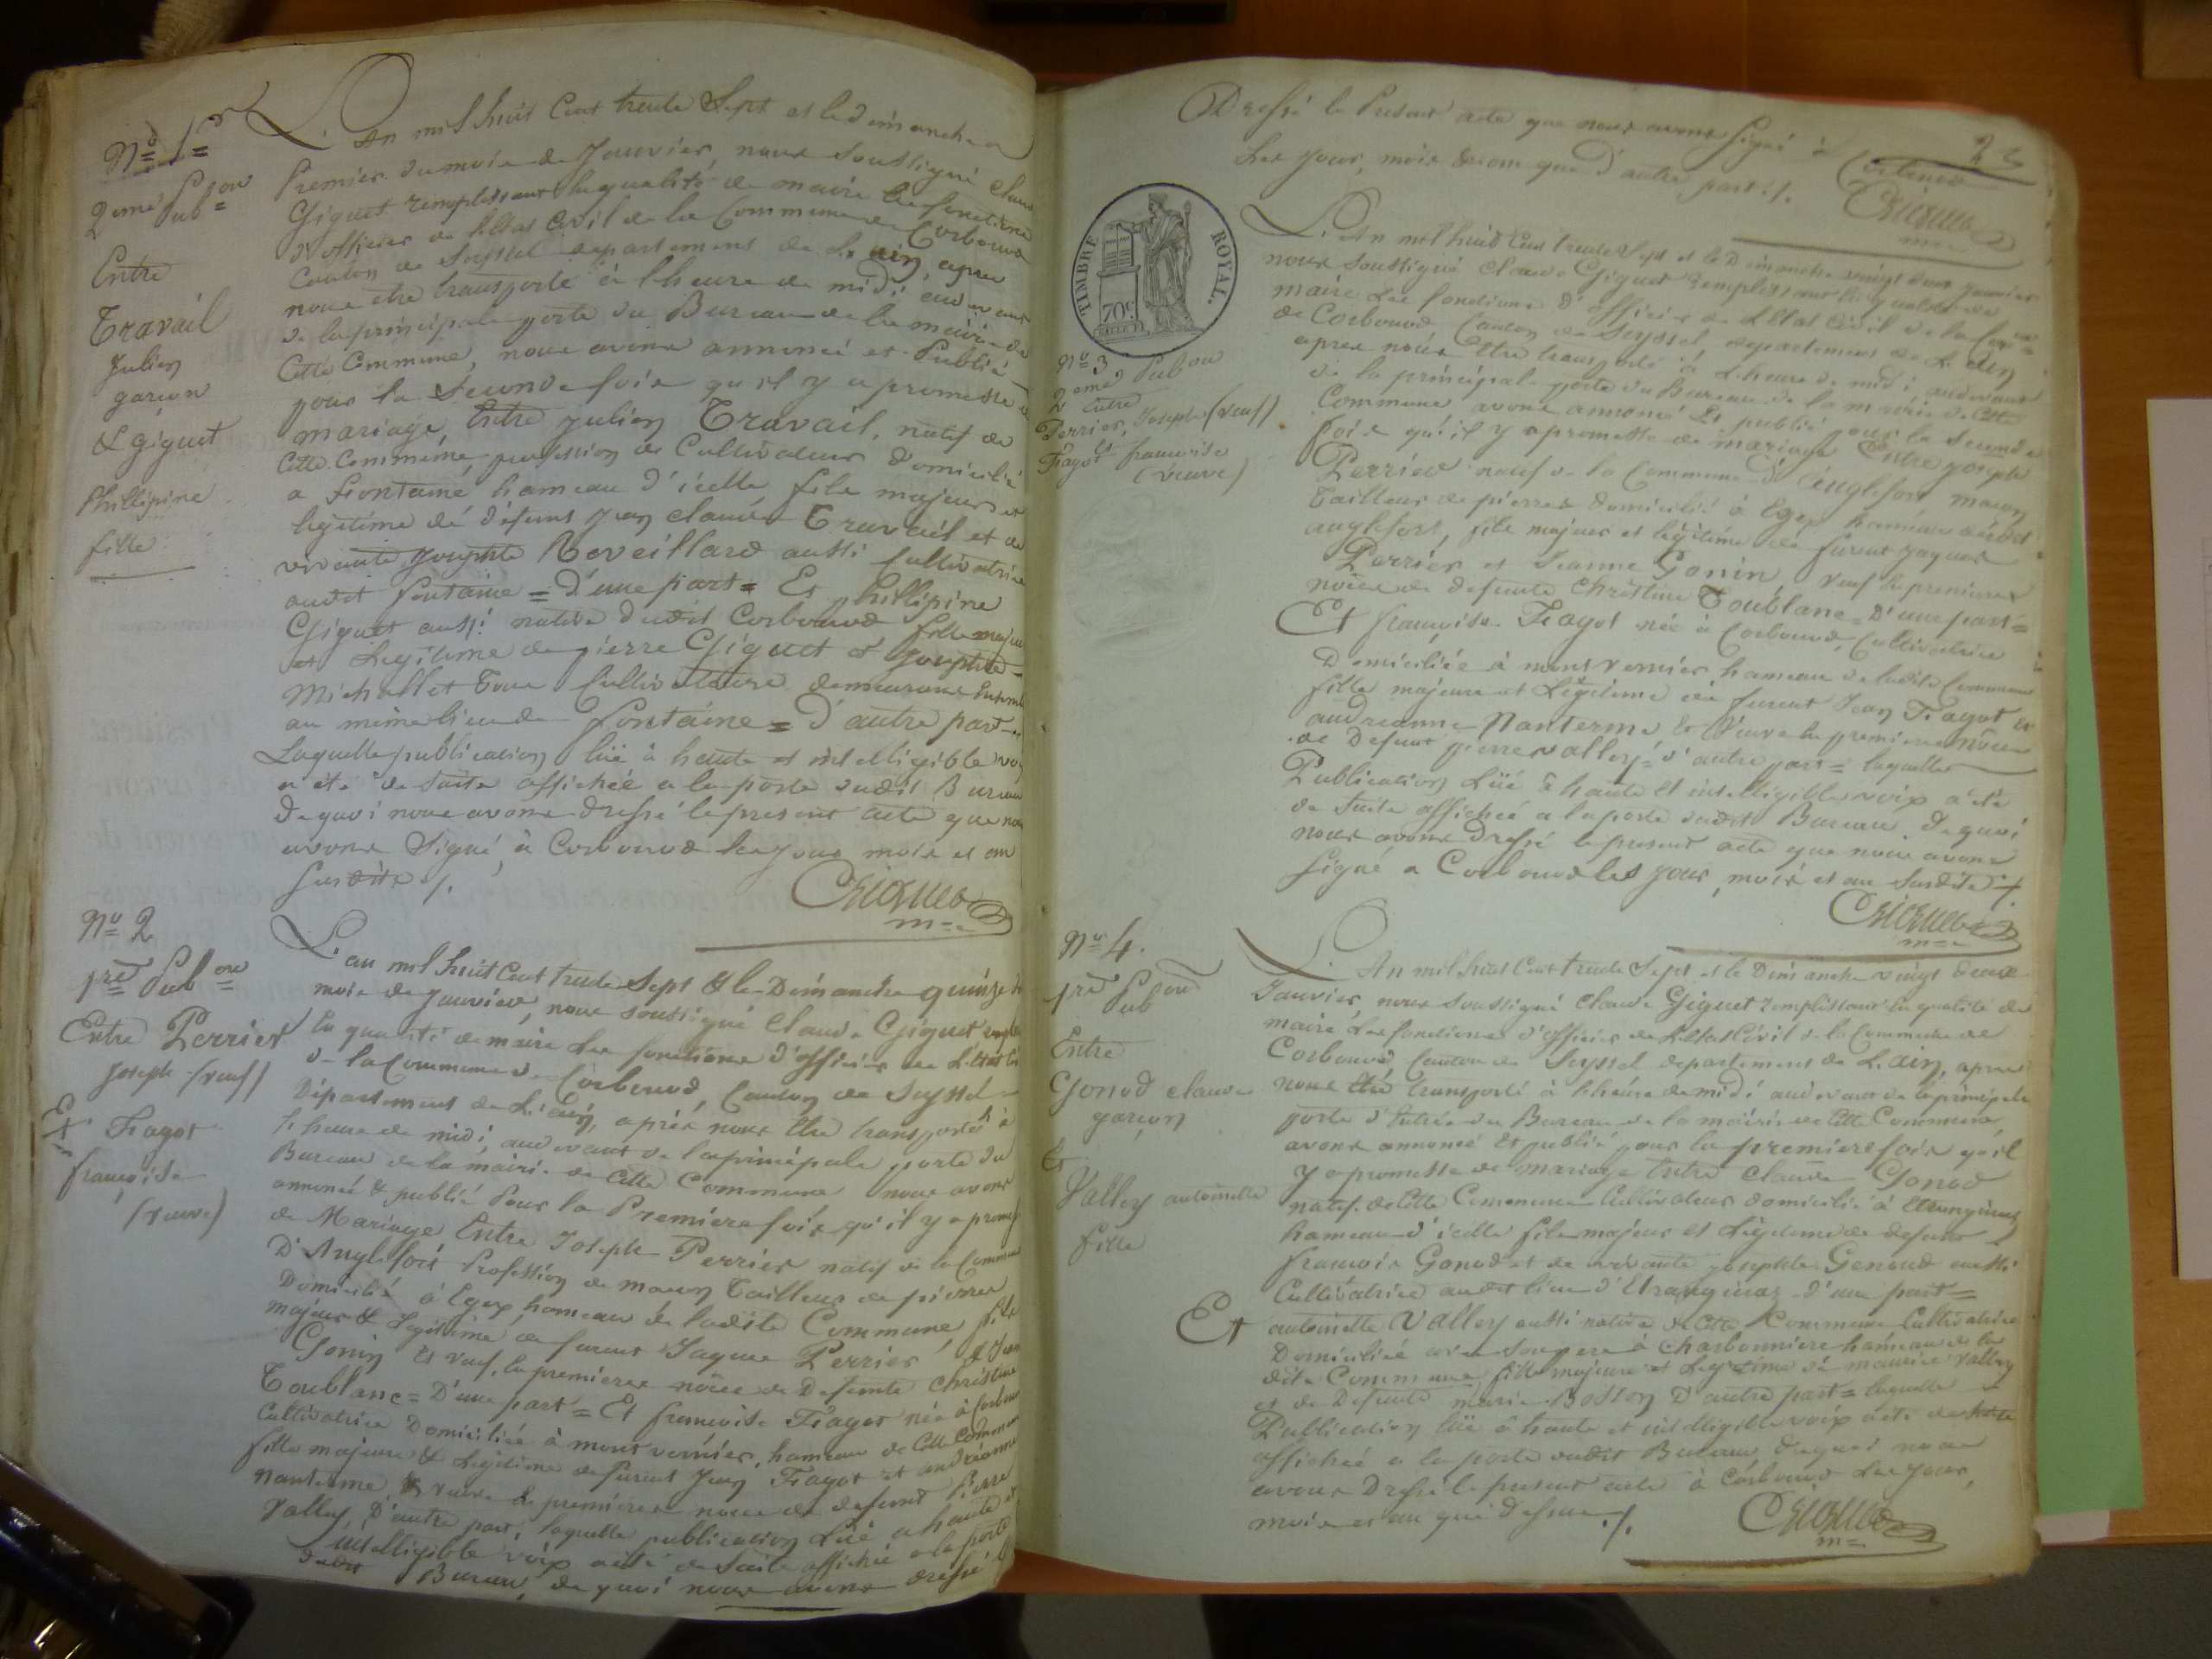 Nº 1er
2eme Pubon
Entre
Travail
Julien
garçon
& Giguet
Phillipine
fille
L'An mil huit Cent trente Sept et le dimanche
Premier du mois de Janvier, nous soussigné Claude
Giguet remplissant la qualité de maire les fonctions
d'officier de l'Etat Civil de la Commune de Corbonod
Canton de Seyssel departement de L'ain, apres
nous etre transporté à l'heure de midi au devant
de la principale porte du Bureau de la mairie de
Cette Commune, nous avons annoncé et Publié
pour la Seconde fois qu'il y a promesse de
mariage, Entre Julien Travail, natif de
Cette Commune, profession de Cultivateur domicilié
a Fontaine hameau d'icelle fils majeur et
legitime dé défunt Jean Claude Travail et de
vivante Josephte Reveillard aussi Cultivatrice
audit fontaine = D'une part = Et Phillipine
Giguet aussi native dudit Corbonod fille majeure
et Legitime de pierre Giguet et Josephte
Michallet Tous Cultivateurs demeurant Ensemble
au même lieu de fontaine = d'autre part =
Laquelle publication lüe à haute et intelligible voix
a été de suite affichée a la porte dudit Bureau
De quoi nous avons dressé le present acte que nous
avons Signé à Corbonod les jour mois et an
susdits ./.
Giguet
m=e
Nº 2
1re Pubon
Entre Perrier
Joseph (veuf)
Et Fragot
françoise
(veuve)
L'an mil huit Cent trente Sept & le Dimanche quinze du
mois de Janvier, nous soussigné Claude Giguet
la qualité de maire les fonctions d'officier de l'Etat
de la Commune de Corbonod, Canton de Seyssel
Département de L'ain, aprés nous être transporté à
l'heure de midi, au devant de la principale porte du
Bureau de la mairie de Cette Commune nous avons
annoncé & publié Pour la Premiere fois qu'il y a
de Mariage Entre Joseph Perrier natif de la Commune
D'Anglefort Profession de maçon Tailleur de pierre
Domicilié à Egex, hameau de ladite Commune, fils
majeur & Legitime de furent Jaques Perrier, &
Gonin Et veuf en premieres noces de Defunte Christine
Toublanc = D'une part = Et françoise Fragot née à Corbonod
Cultivatrice Domiciliée à mont vernier, hameau de Cette Commune
fille majeure & Legitime de furent Jean Fragot et andréanne
nanterme & veuve en premieres noces de defunt Pierre
Valley, D'autre part, laquelle publication lüe a haute et
intelligible voix a été de suite affichée a la porte
dudit Bureau, de quoi nous avons dressé
2
Dressé le Present acte que nous avons Signé à Corbonod
Les jour, mois & an que D'autre part ./.
Giguet
m=e
TIMBRE ROYAL.
70c
Nº 3
2eme Pubon
Entre
Perrier, Joseph (veuf)
Et
Fragot françoise
(veuve)
L'An mil huit Cent trente Sept et le Dimanche vingt deux Janvier
nous soussigné Claude Giguet remplissant la qualité de
maire Les fonctions d'officier de L'Etat Civil de la Comne
de Corbonod Canton de Seyssel departement de L'Ain
apres nous Etre transporté à L'heure de midi, au devant
de la principale porte du Bureau de la mairie de Cette
Commune, avons annoncé Et publié pour la Seconde
fois qu'il y a promesse de mariage Entre Joseph
Perrier natif de la Commune d'Anglefort maçon
Tailleur de pierres domicilié à Egex hameau dudit
anglefort, fils majeur et legitime dé furent Jaques
Perrier et Jeanne Gonin, veuf en premieres
noces de defunte Christine Toublanc = D'une part =
Et françoise Fragot née à Corbonod, Cultivatrice
Domiciliée à mont vernier hameau de ladite Commune
fille majeure et Legitime dé furent Jean Fragot Et
andreanne Nanterme Et Veuve en premieres noces
de Defunt pierre valley = d'autre part = laquelle
Publication Lüe à haute Et intelligible voix a été
de suite affichée a la porte dudit Bureau. De quoi
nous avons Dressé le present acte que nous avons
signé a Corbonod les jour, mois et an susdits ./.
Giguet
m=e
Nº 4.
1re Pubon
Entre
Gonod claude
garçon
Et
Valley antoinette
fille
L'An mil huit Cent trente Sept et le Dimanche vingt deux
Janvier, nous soussigné Claude Giguet remplissant la qualité de
maire Les fonctions d'officier de L'Etat Civil de la Commune de
Corbonod Canton de Seyssel departement de L'ain, apres
nous être transporté à l'heure de midi au devant de la principale
porte d'Entrée du Bureau de la mairie de Cette Commune
avons annoncé Et publié pour la premiere fois qu'il
y a promesse de mariage Entre Claude Gonod
natif de Cette Commune Cultivateur domicilié à Etranginaz
hameau d'icelle fils majeur et Légitime de defunt
françois Gonod et de vivante Josephte Genoud aussi
Cultivatrice audit lieu d'Etranginaz - d'une part =
Et antoinette Valley aussi native de Cette Commune Cultivatrice
Domiciliée avec son pere à Charbonniere hameau de la
dite Commune fille majeure et Legitime dé maurice Valley
et de Defunte marie Bosson D'autre part = laquelle
Publication lüe à haute et intelligible voix a été de suite
affichée a la porte dudit Bureau, De quoi nous
avons Dressé le present acte à Corbonod Les jour,
mois et an que Dessus ./.
Giguet
m=e